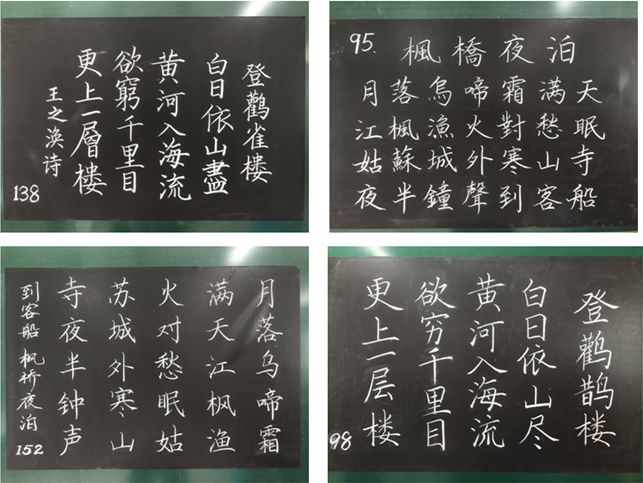 登鸛雀楼
白日依山盡
黄河入海流
欲窮千里目
更上一層楼
王之涣诗
138
95. 楓橋夜泊
月落烏啼霜满天
江楓漁火對愁眠
姑蘇城外寒山寺
夜半鐘聲到客船
月落乌啼霜
满天江枫渔
火对愁眠姑
苏城外寒山
寺夜半钟声
到客船 枫桥夜泊
152
登鹳鹊楼
白日依山尽
黄河入海流
欲穷千里目
更上一层楼
98